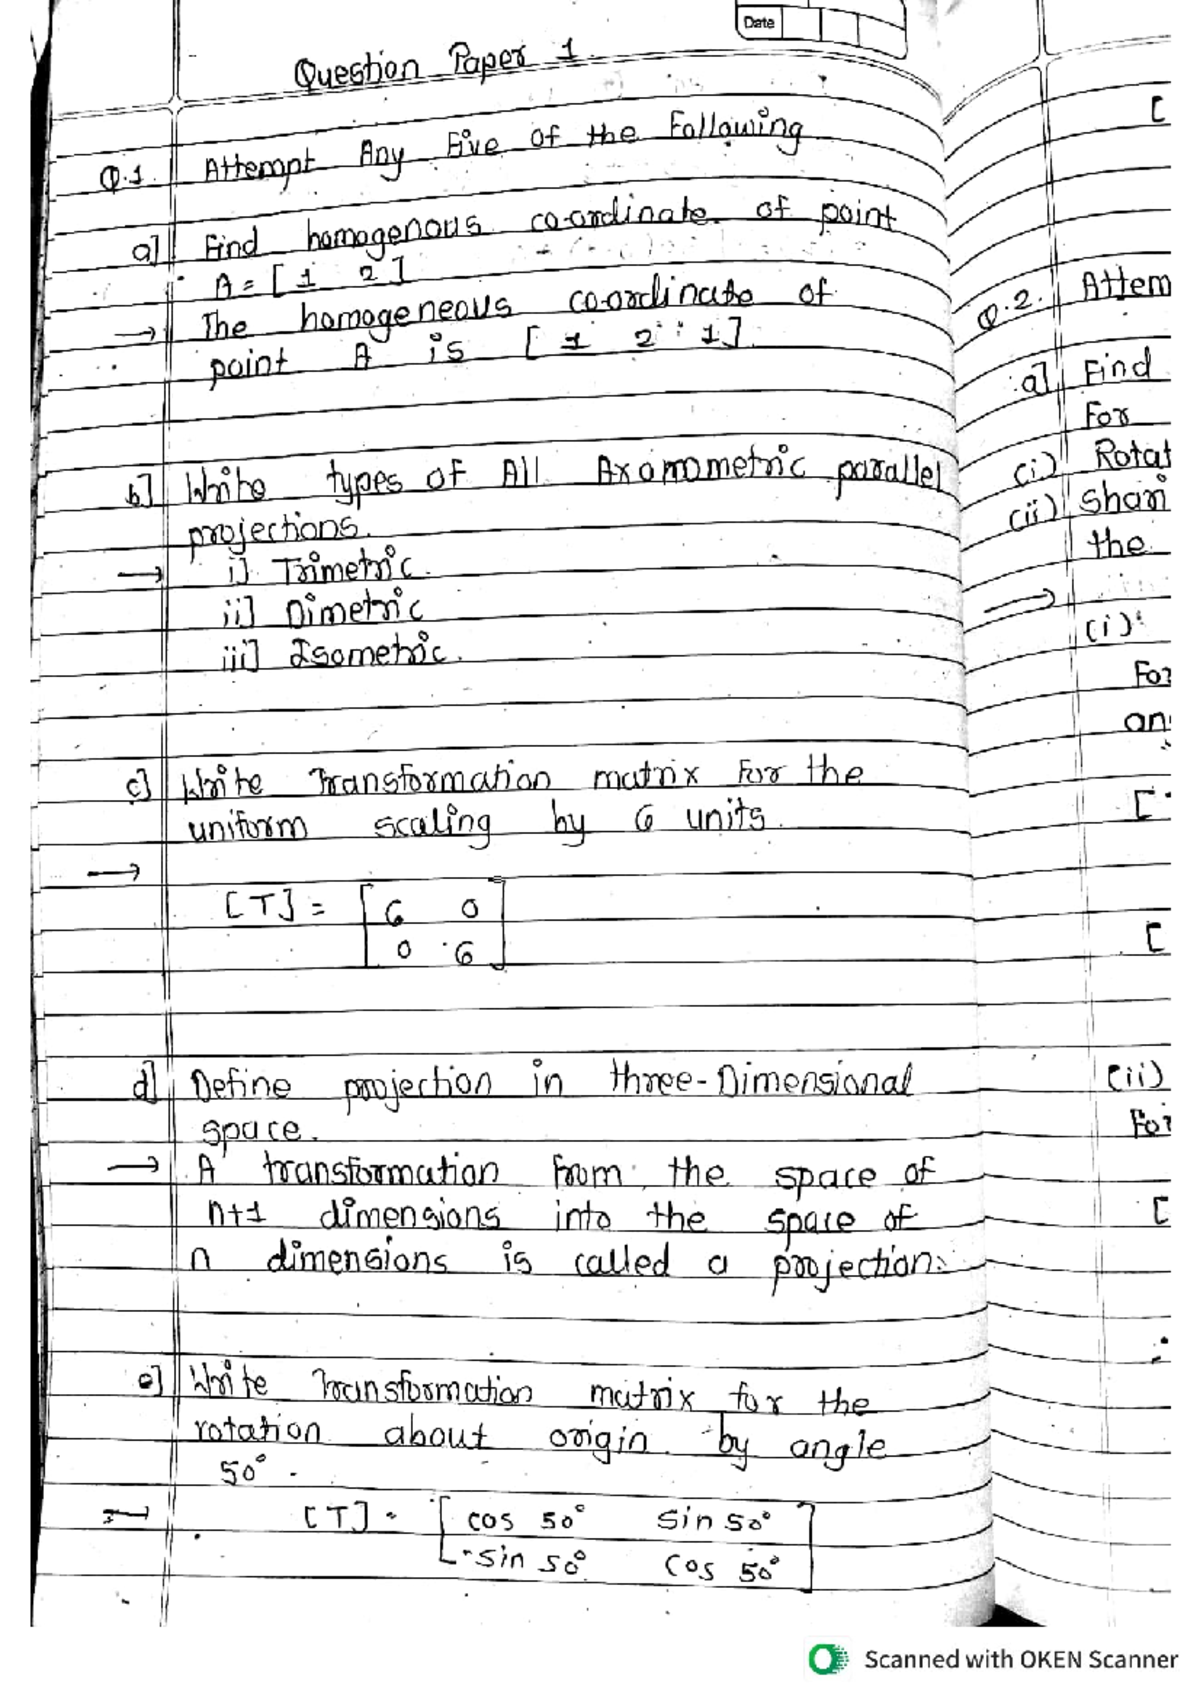 Date
Question Paper 1
Q.1. Attempt Any Five of the Following
a] Find homogenous co-ordinate of point
A = [ 1 2 ]
→ The homogeneous co-ordinate of
point A is [ 1 2 1 ]
b] Write types of All Axomometric parallel
projections.
→ i] Trimetric.
ii] Dimetric
iii] Isometric.
c] Write Transformation matrix For the
uniform scaling by 6 units.
→
[T] = [ 6 0
0 6 ]
d] Define projection in three-Dimensional
space.
→ A transformation from the space of
n+1 dimensions into the space of
n dimensions is called a projection.
e] Write Transformation matrix for the
rotation about origin by angle
50°.
→ [T] = [ cos 50° sin 50°
-sin 50° cos 50° ]
[
Q.2. Attem
a] Find
For
(i) Rotat
(ii) Shari
the
→
(i)
For
an
[
[
(ii)
For
[
Scanned with OKEN Scanner